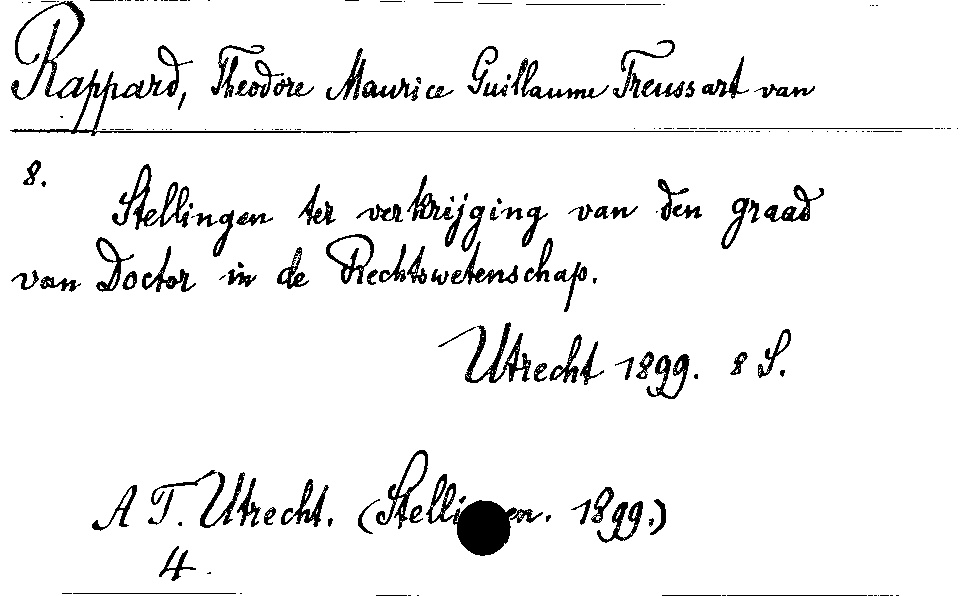 Rappard, Theodore Maurice Guillaume Treussart van
8.
Stellingen ter verkrijging van den graad
van Doctor in de Rechtswetenschap.
Utrecht 1899. 8 S.
A T. Utrecht. (Stellingen. 1899.)
4.